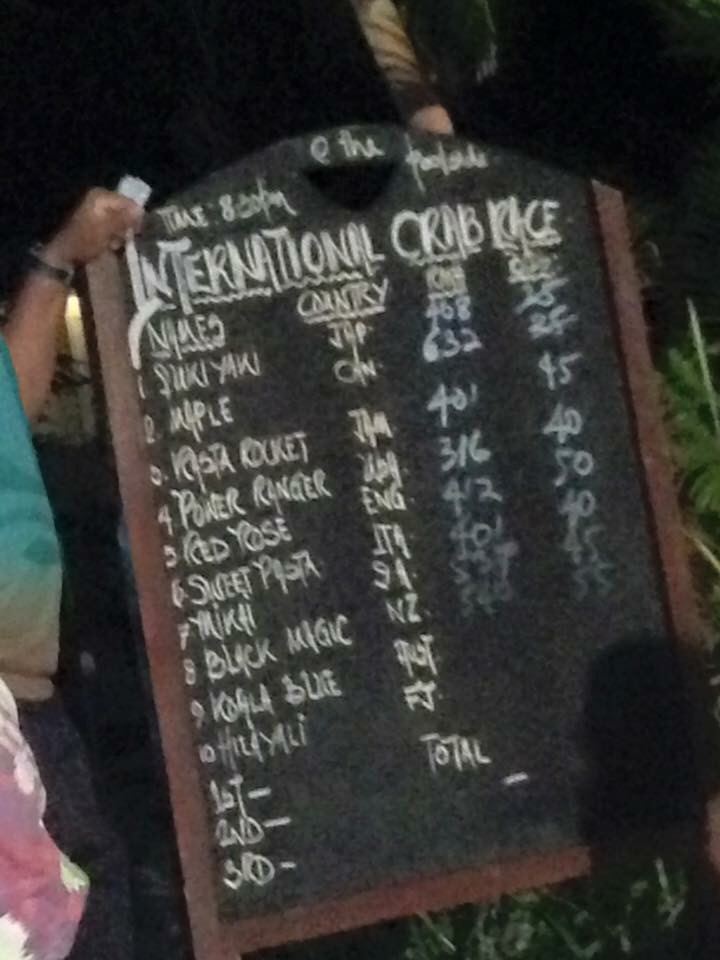 @ the poolside
TIME: 8:30pm
INTERNATIONAL CRAB RACE
NAMES COUNTRY
1 SUKIYAKI JAP 468 25
2 MAPLE CAN 632
3. RASTA ROCKET JAM 401 45
4 POWER RANGER USA 316 40
5 RED ROSE ENG 412 50
6 SWEET PASTA ITA 401 40
7 MIKAI SA
8 BLACK MAGIC NZ
9 KOALA BLUE AUST
10 HILAYALI FJ
TOTAL
1ST -
2ND -
3RD -